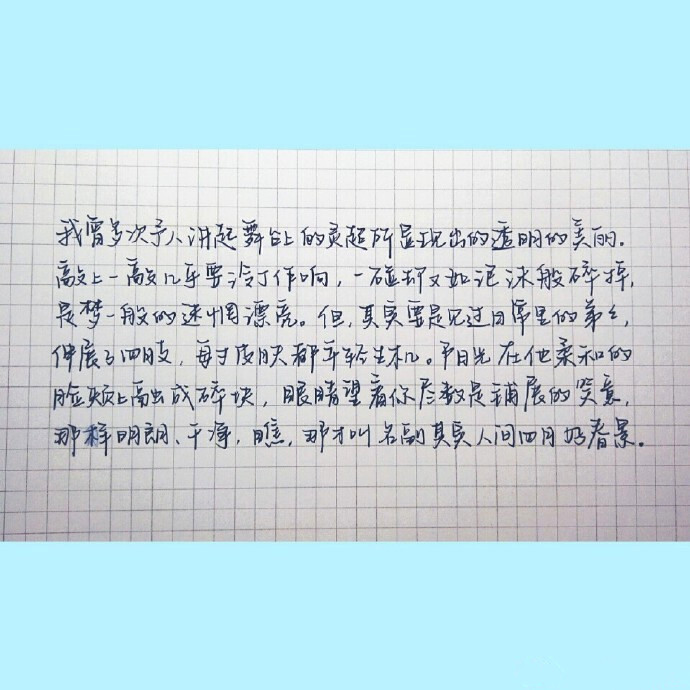 我曾多次予人讲起舞台上的灵超所显现出的透明的美丽。
敲上一敲几乎要泠丁作响，一碰却又如泡沫般碎掉，
是梦一般的迷惘漂亮。但，其实要是见过日常里的弟弟，
伸展了四肢，每寸皮肤都年轻生机。平日光在他柔和的
脸颊上融成碎块，眼睛望着你尽数是铺展的笑意，
那样明朗、干净，瞧，那才叫名副其实人间四月奶春景。